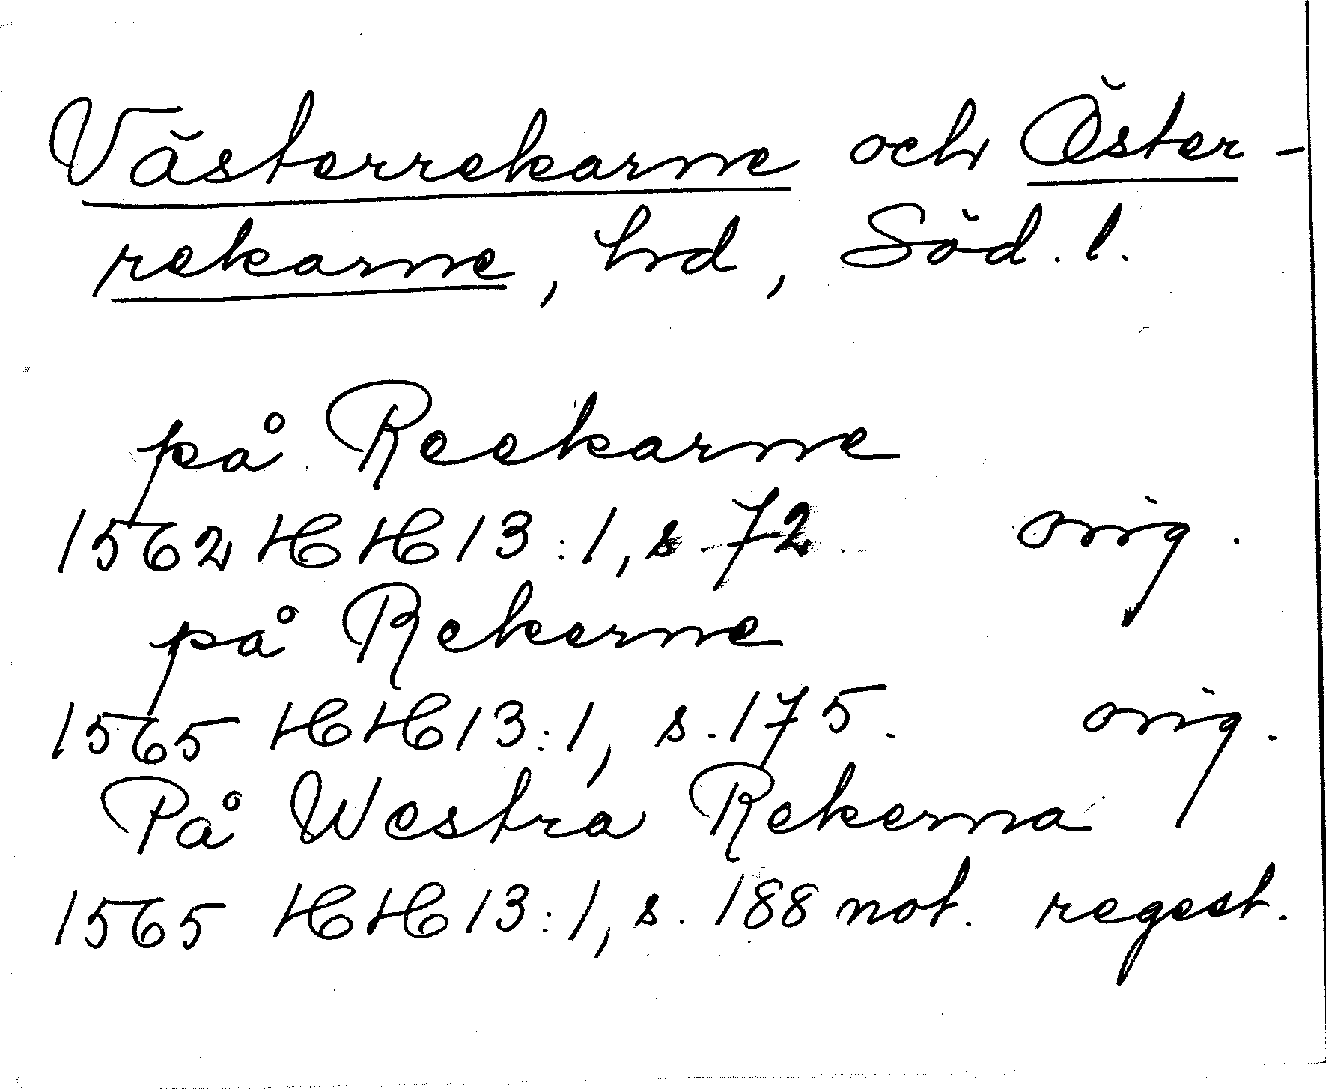 Västerrekarne och Öster-
rekarne, hd, Söd. l.
på Reekarne
1562 HH 13:1, s 72 orig.
på Rekerne
1565 HH 13:1, s. 175. orig.
På Westra Rekerna
1565 HH 13:1, s. 188 not. regest.